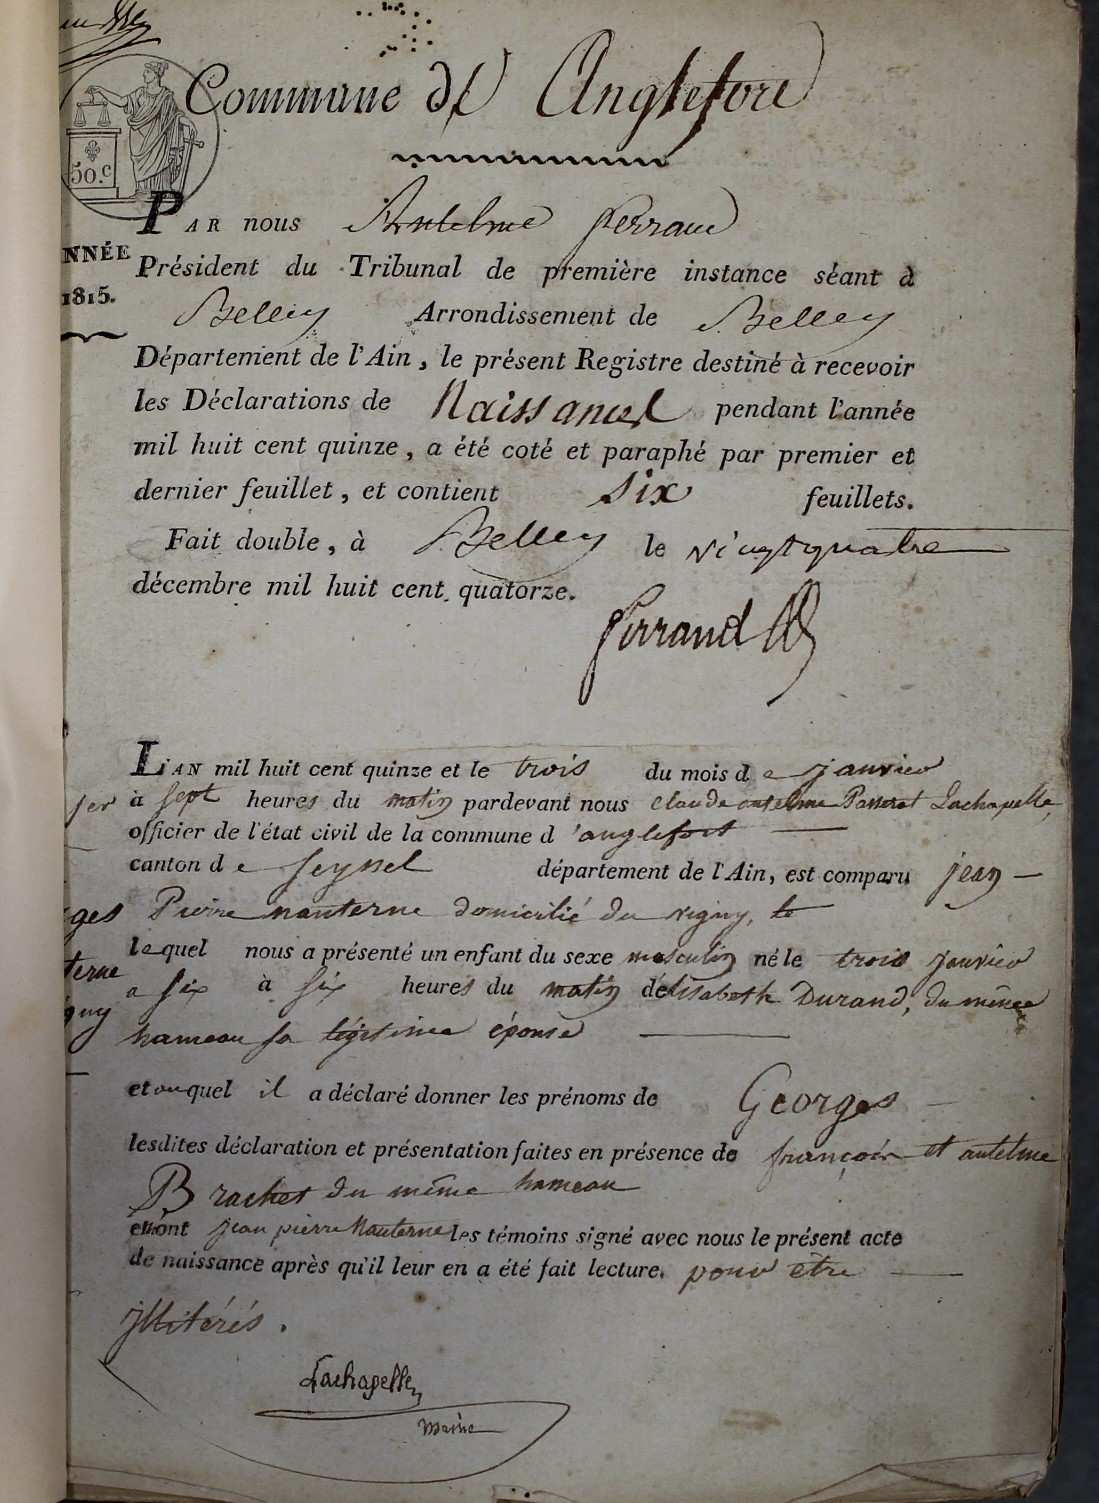 Commune de Anglefort
50.c
PAR nous Antelme Perraud
NNÉE
Président du Tribunal de première instance séant à
1815.
Belley Arrondissement de Belley
Département de l'Ain, le présent Registre destiné à recevoir
les Déclarations de Naissances pendant l'année
mil huit cent quinze, a été coté et paraphé par premier et
dernier feuillet, et contient six feuillets.
Fait double, à Belley le vingt quatre
décembre mil huit cent quatorze.
Perraud
L'AN mil huit cent quinze et le trois du mois de janvier
1er à sept heures du matin pardevant nous Claude antelme Passerat Lachapelle,
officier de l'état civil de la commune d'anglefort
canton de Seyssel département de l'Ain, est comparu jean
ges Pierre nanterne domicilié du vigny, le
lequel nous a présenté un enfant du sexe masculin né le trois janvier
terne a six à six heures du matin d'élisabeth Durand, du même
gny hameau sa légitime épouse
et auquel il a déclaré donner les prénoms de Georges
lesdites déclaration et présentation faites en présence de françois et antelme
Brachet du même hameau
et n'ont jean pierre Nanterne les témoins signé avec nous le présent acte
de naissance après qu'il leur en a été fait lecture. pour être
jllitérés.
Lachapelle
maire